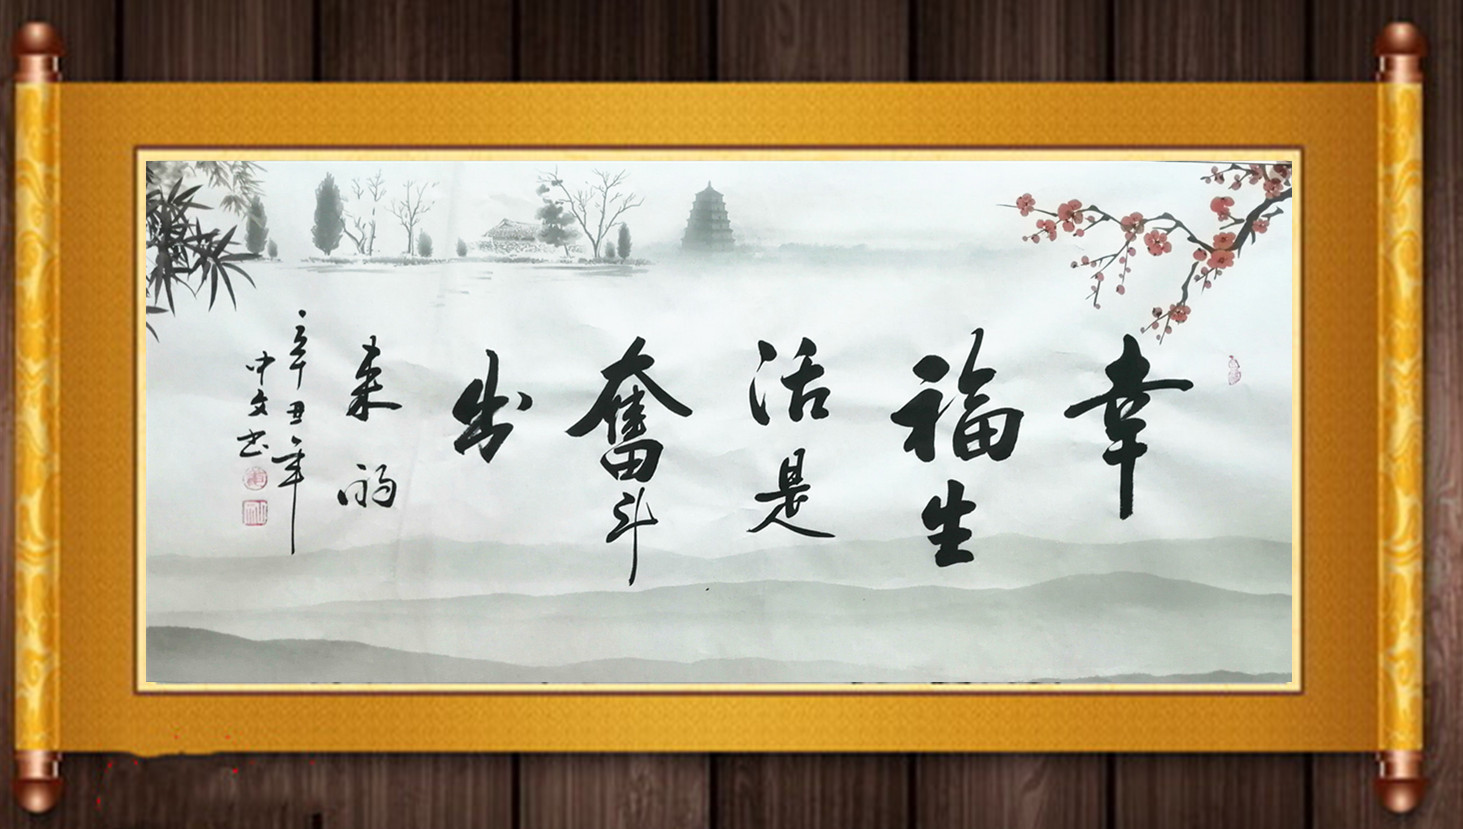 幸
福生
活是
奮斗
出
来的
辛丑年
中文书